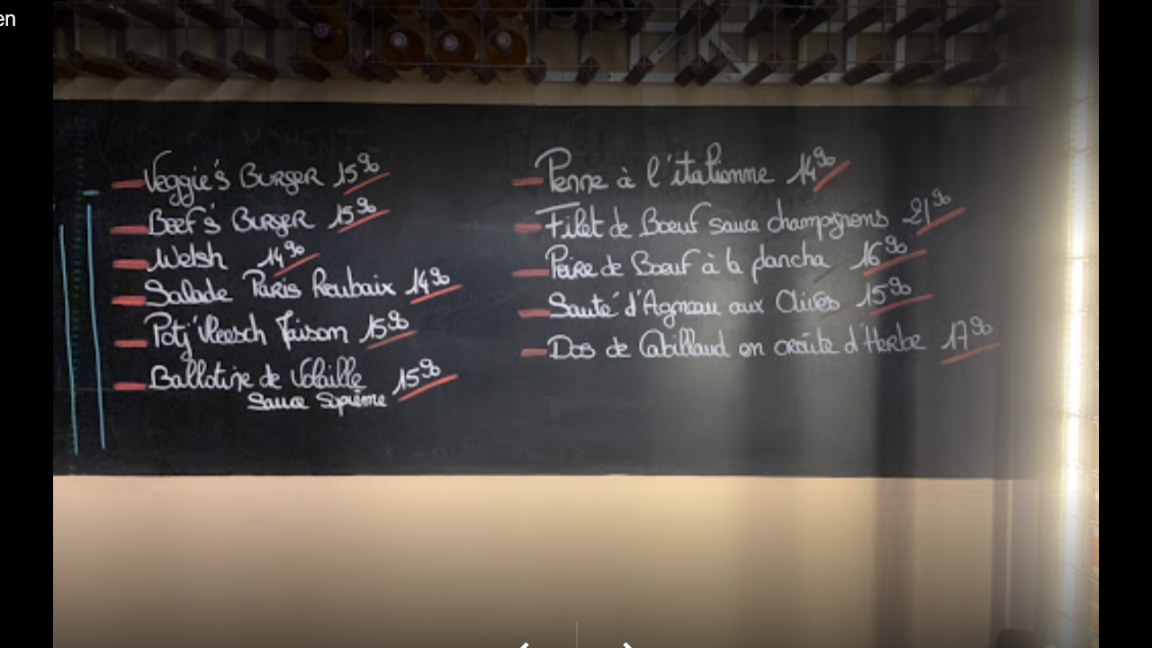 en
Veggie's Burger 15,90
Beef's Burger 15,90
Welsh 14,90
Salade Paris Roubaix 14,90
Potj'Vleesch Maison 15,90
Ballotine de Volaille 15,90
Sauce Suprême
Penne à l'italienne 14,90
Filet de Boeuf sauce champignons 21,90
Poire de Boeuf à la plancha 16,90
Sauté d'Agneau aux Olives 15,90
Dos de Cabillaud en croûte d'Herbe 17,90